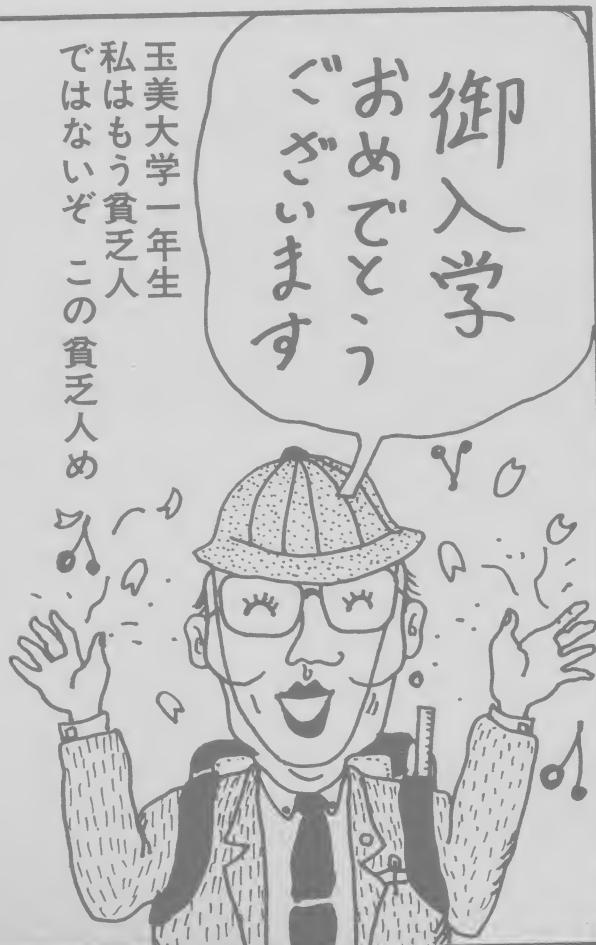 御入学
おめでとう
ございます
玉美大学一年生
私はもう貧乏人
ではないぞ この貧乏人め